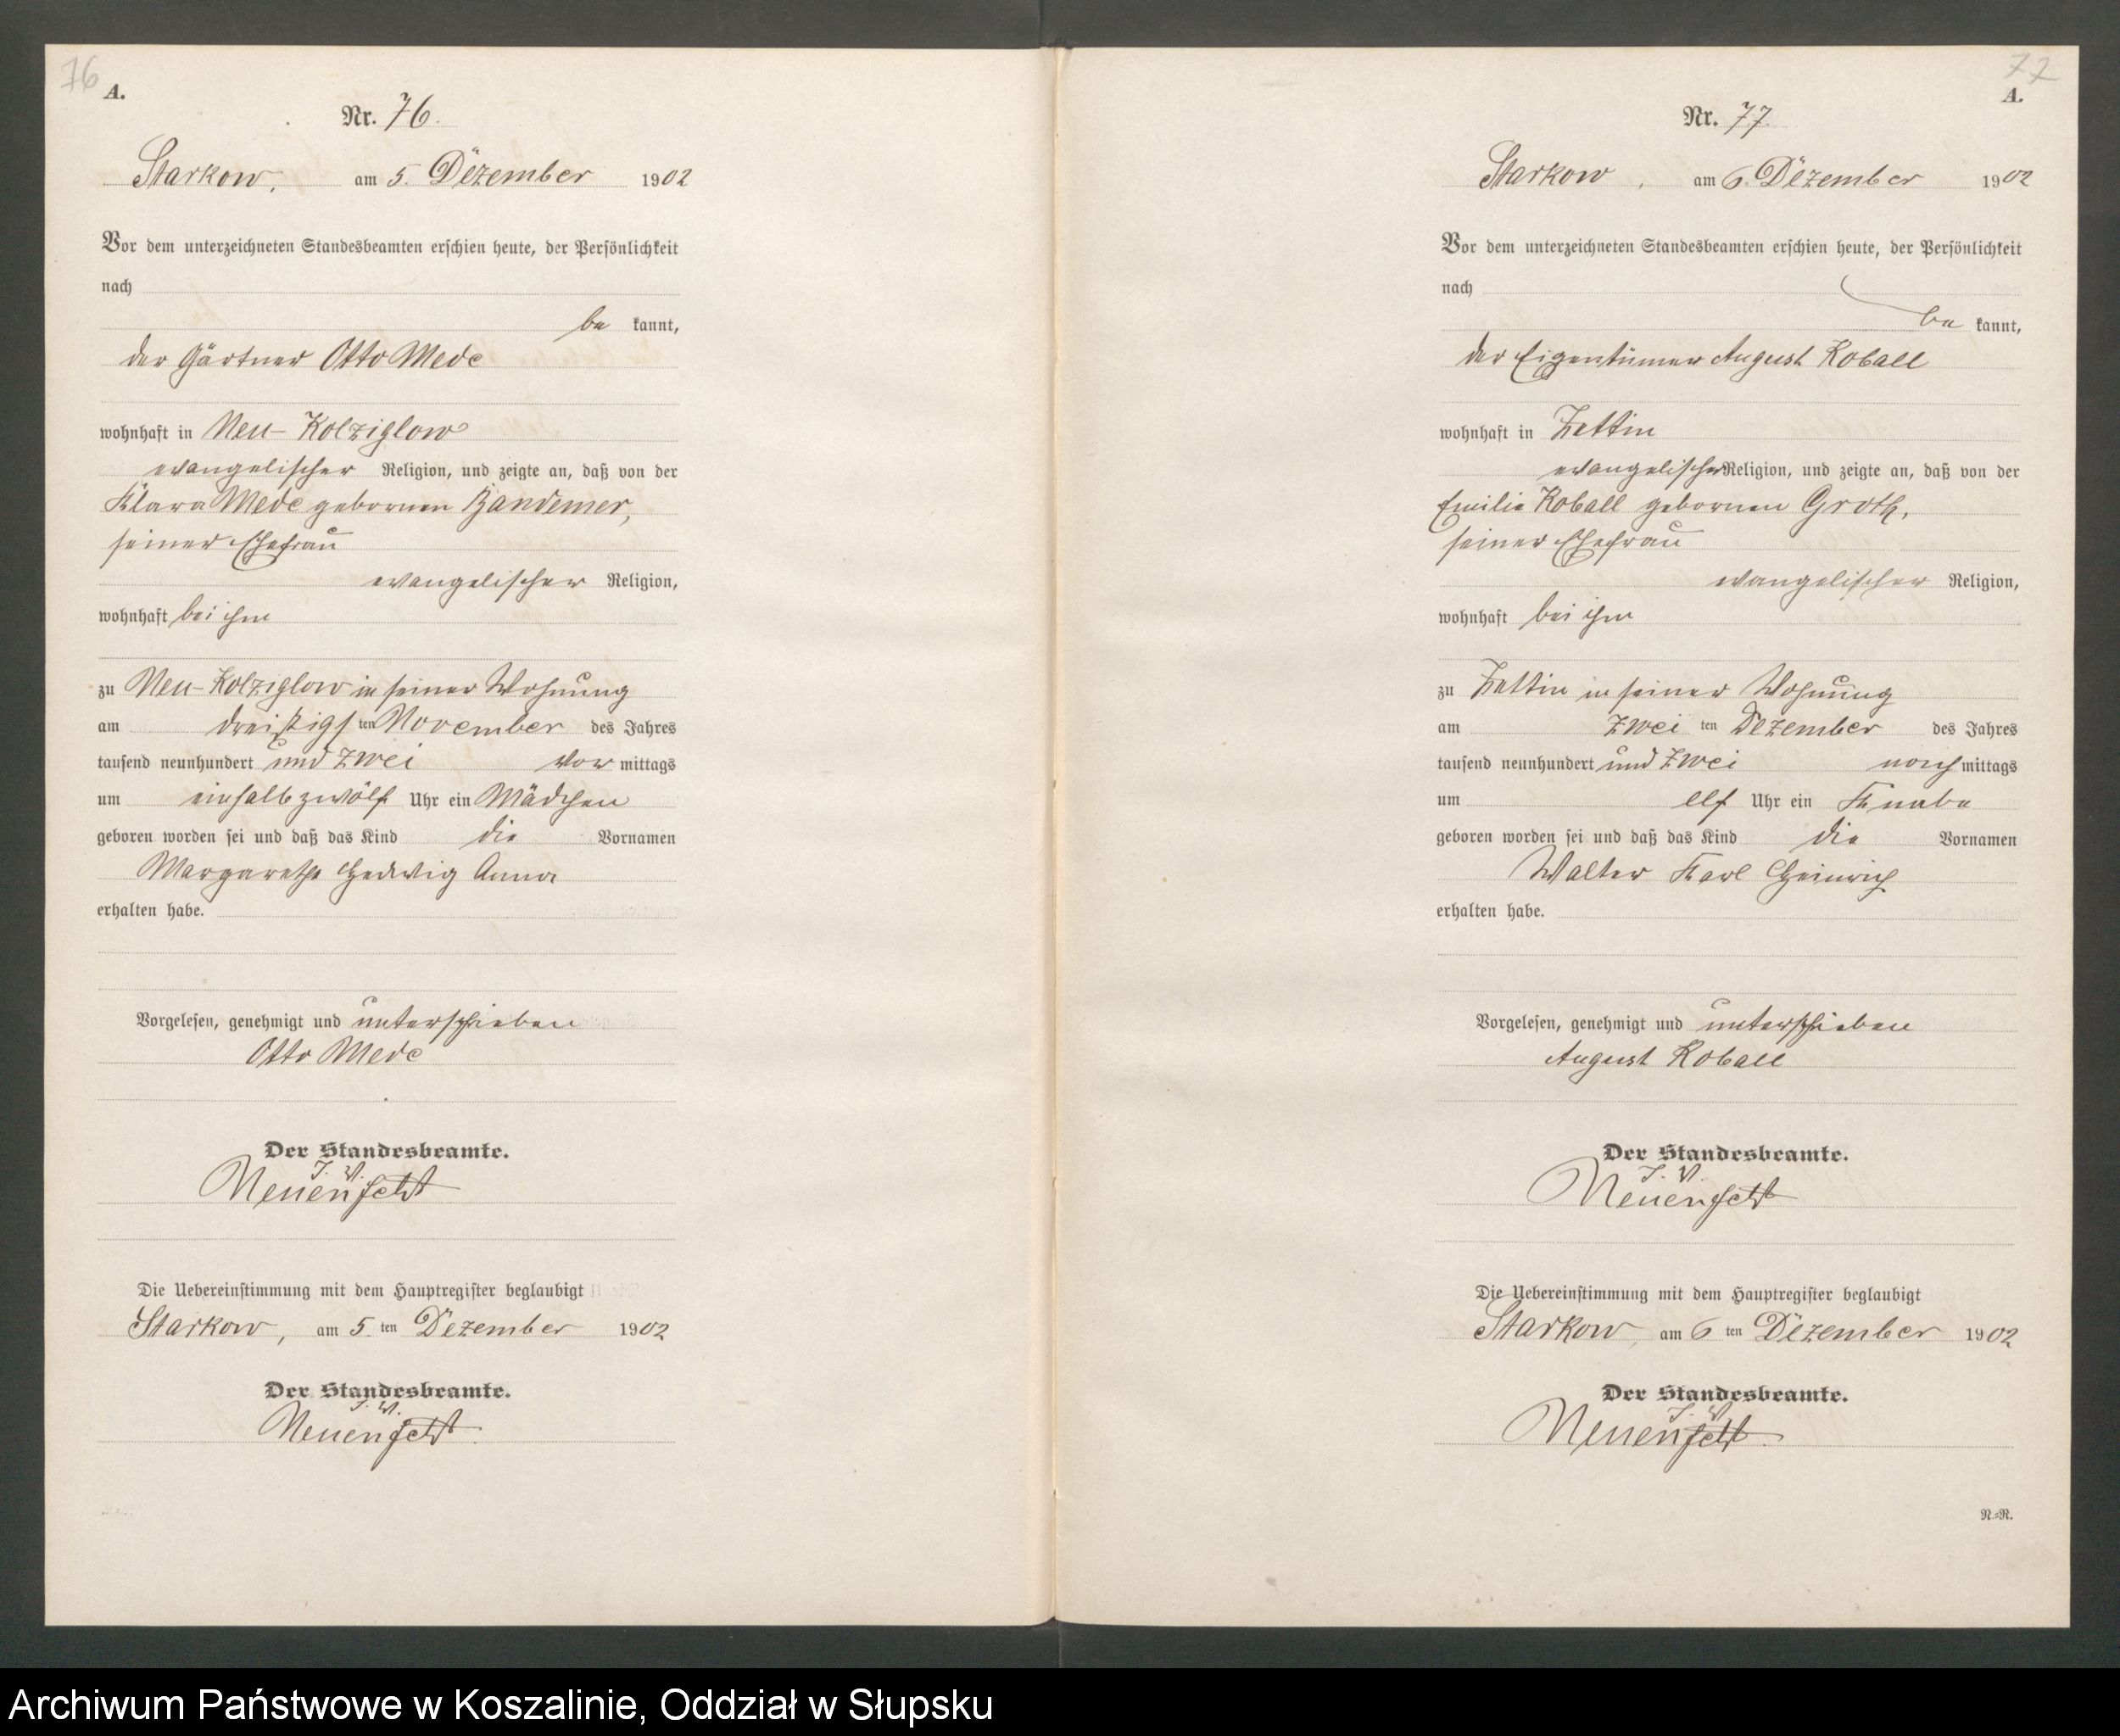 76
A.
Nr. 76.
Starkow, am 5. Dezember 1902
Vor dem unterzeichneten Standesbeamten erschien heute, der Persönlichkeit
nach
be kannt,
der Gärtner Otto Mede
wohnhaft in Neu-Kolziglow
evangelischer Religion, und zeigte an, daß von der
Klara Mede gebornen Bandemer,
seiner Ehefrau
evangelischer Religion,
wohnhaft bei ihm
zu Neu-Kolziglow in seiner Wohnung
am dreißigsten November des Jahres
tausend neunhundert und zwei vor mittags
um einhalb zwölf Uhr ein Mädchen
geboren worden sei und daß das Kind die Vornamen
Margarethe Hedwig Anna
erhalten habe.
Vorgelesen, genehmigt und unterschrieben
Otto Mede
Der Standesbeamte.
J. V.
Neuenfeldt
Die Uebereinstimmung mit dem Hauptregister beglaubigt
Starkow, am 5. ten Dezember 1902
Der Standesbeamte.
J. V.
Neuenfeldt.
77
A.
Nr. 77.
Starkow, am 6. Dezember 1902
Vor dem unterzeichneten Standesbeamten erschien heute, der Persönlichkeit
nach
be kannt,
der Eigentümer August Koball
wohnhaft in Zettin
evangelischer Religion, und zeigte an, daß von der
Emilie Koball gebornen Groth,
seiner Ehefrau
evangelischer Religion,
wohnhaft bei ihm
zu Zettin in seiner Wohnung
am zwei ten Dezember des Jahres
tausend neunhundert und zwei nach mittags
um elf Uhr ein Knabe
geboren worden sei und daß das Kind die Vornamen
Walter Karl Heinrich
erhalten habe.
Vorgelesen, genehmigt und unterschrieben
August Koball
Der Standesbeamte.
J. V.
Neuenfeldt
Die Uebereinstimmung mit dem Hauptregister beglaubigt
Starkow, am 6 ten Dezember 1902
Der Standesbeamte.
J. V.
Neuenfeldt.
N.-N.
Archiwum Państwowe w Koszalinie, Oddział w Słupsku